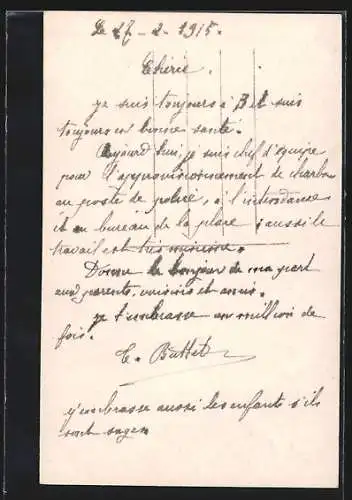 Le 27 - 2 - 1915.
Chérie.
je suis toujours à B et suis
toujours en bonne santé.
Aujourd hui, je suis chef d'équipe
pour l'approvisionnement de charbon
au poste de police, à l'intendance
et au bureau de la place ; aussi le
travail est très minime.
Donne le bonjour de ma part
aux parents, voisins et amis.
je t'embrasse un million de
fois.
E. Buttet
j'embrasse aussi les enfants s'ils
sont sages